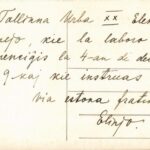 Tallinna Urba xx Elem
nejo, kie la laboro
komenciĝis la 4-an de de
9 kaj kie instruas
via estona fratu
Elinjo.